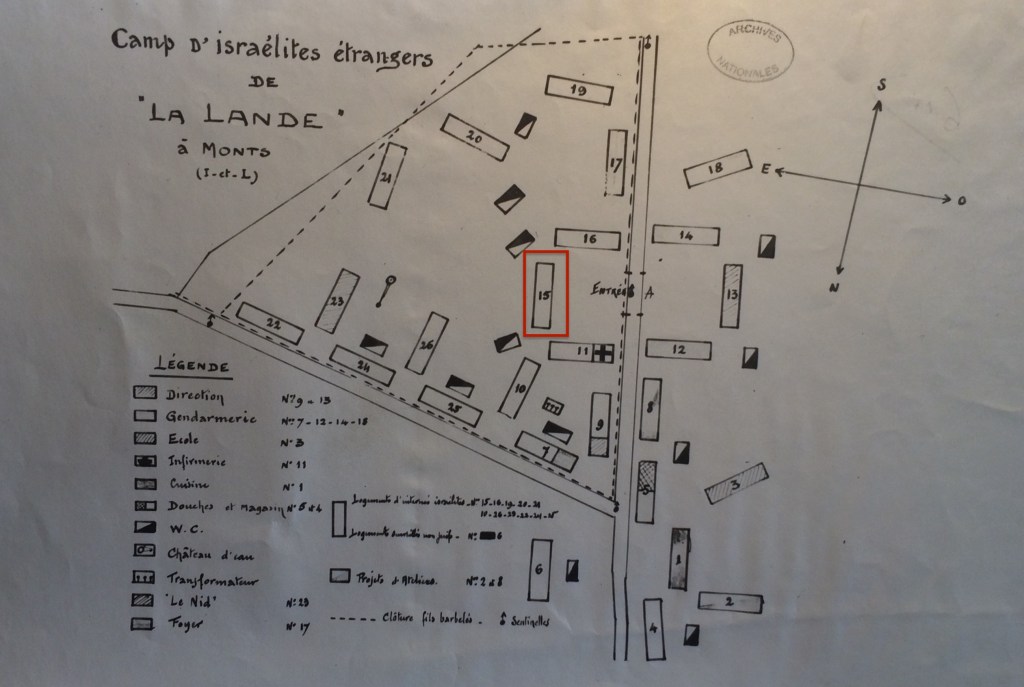 Camp d'israélites étrangers
DE
"LA LANDE"
à MONTS
(I-et-L)
ARCHIVES
NATIONALES
S
E
O
N
19
20
17
18
21
16
14
15
ENTRÉE
A
13
23
22
26
24
11
12
10
25
9
8
7
5
3
1
6
2
4
LÉGENDE
Direction Nos 9 - 13
Gendarmerie Nos 7 - 12 - 14 - 18
Ecole N° 3
Infirmerie N° 11
Cuisine N° 1
Douches et magasin Nos 5 & 4
W.C.
Château d'eau
Transformateur
"Le Nid" N° 23
Foyer N° 17
Logements d'internés israélites Nos 15-16-19-20-21
10-26-22-24-25
Logements non juifs - N° 6
Projets d'Ateliers. Nos 2 & 8
Clôture fils barbelés - Sentinelles